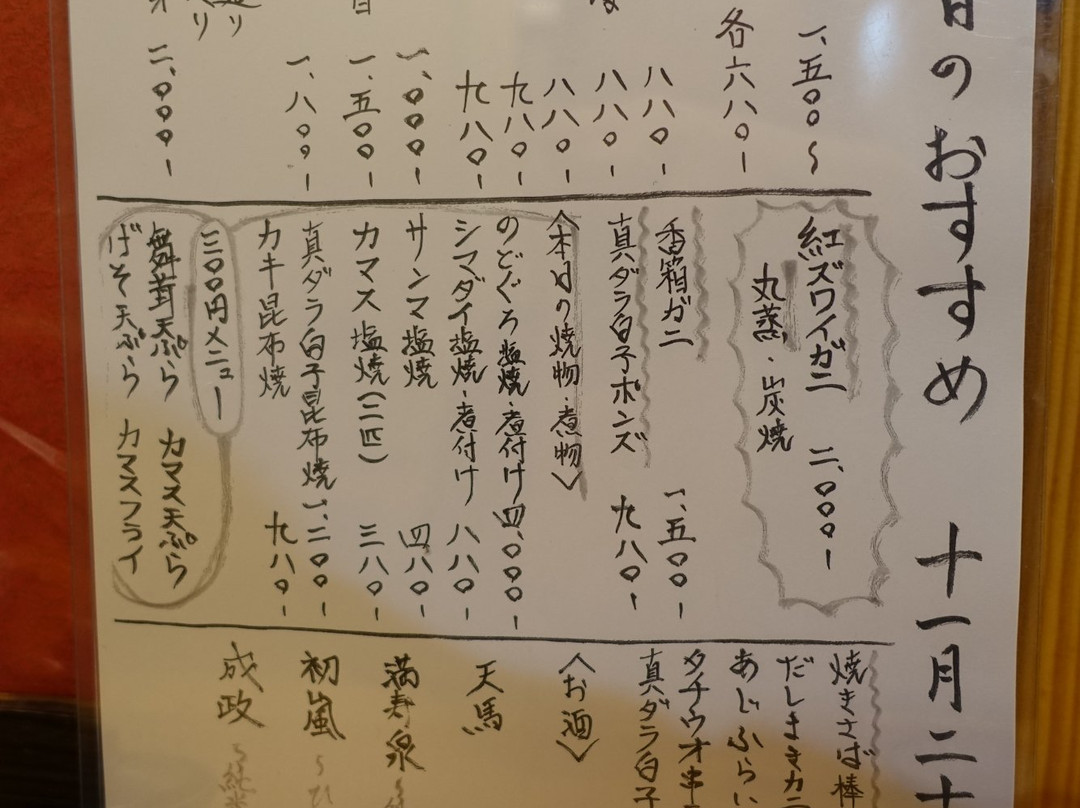 日のおすすめ 十一月二十
一、五〇〇〜
各六八〇-
八八〇-
八八〇-
八八〇-
九八〇-
九八〇-
一、〇〇〇-
一、五〇〇-
一、八〇〇-
二、〇〇〇-
紅ズワイガニ 二、〇〇〇-
丸蒸・炭焼
香箱ガニ 一、五〇〇-
真ダラ白子ポンズ 九八〇-
〈本日の焼物・煮物〉
のどぐろ塩焼・煮付け 四、〇〇〇-
シマダイ塩焼・煮付け 八八〇-
サンマ塩焼 四八〇-
カマス塩焼(二匹) 三八〇-
真ダラ白子昆布焼 一、二〇〇-
カキ昆布焼 九八〇-
三〇〇円メニュー
舞茸天ぷら カマス天ぷら
げそ天ぷら カマスフライ
焼きさば棒
だしまきカニ
あじふらい
タチウオ串
真ダラ白子
〈お酒〉
天馬
満寿泉
初嵐 〜ひ
成政 〜純米